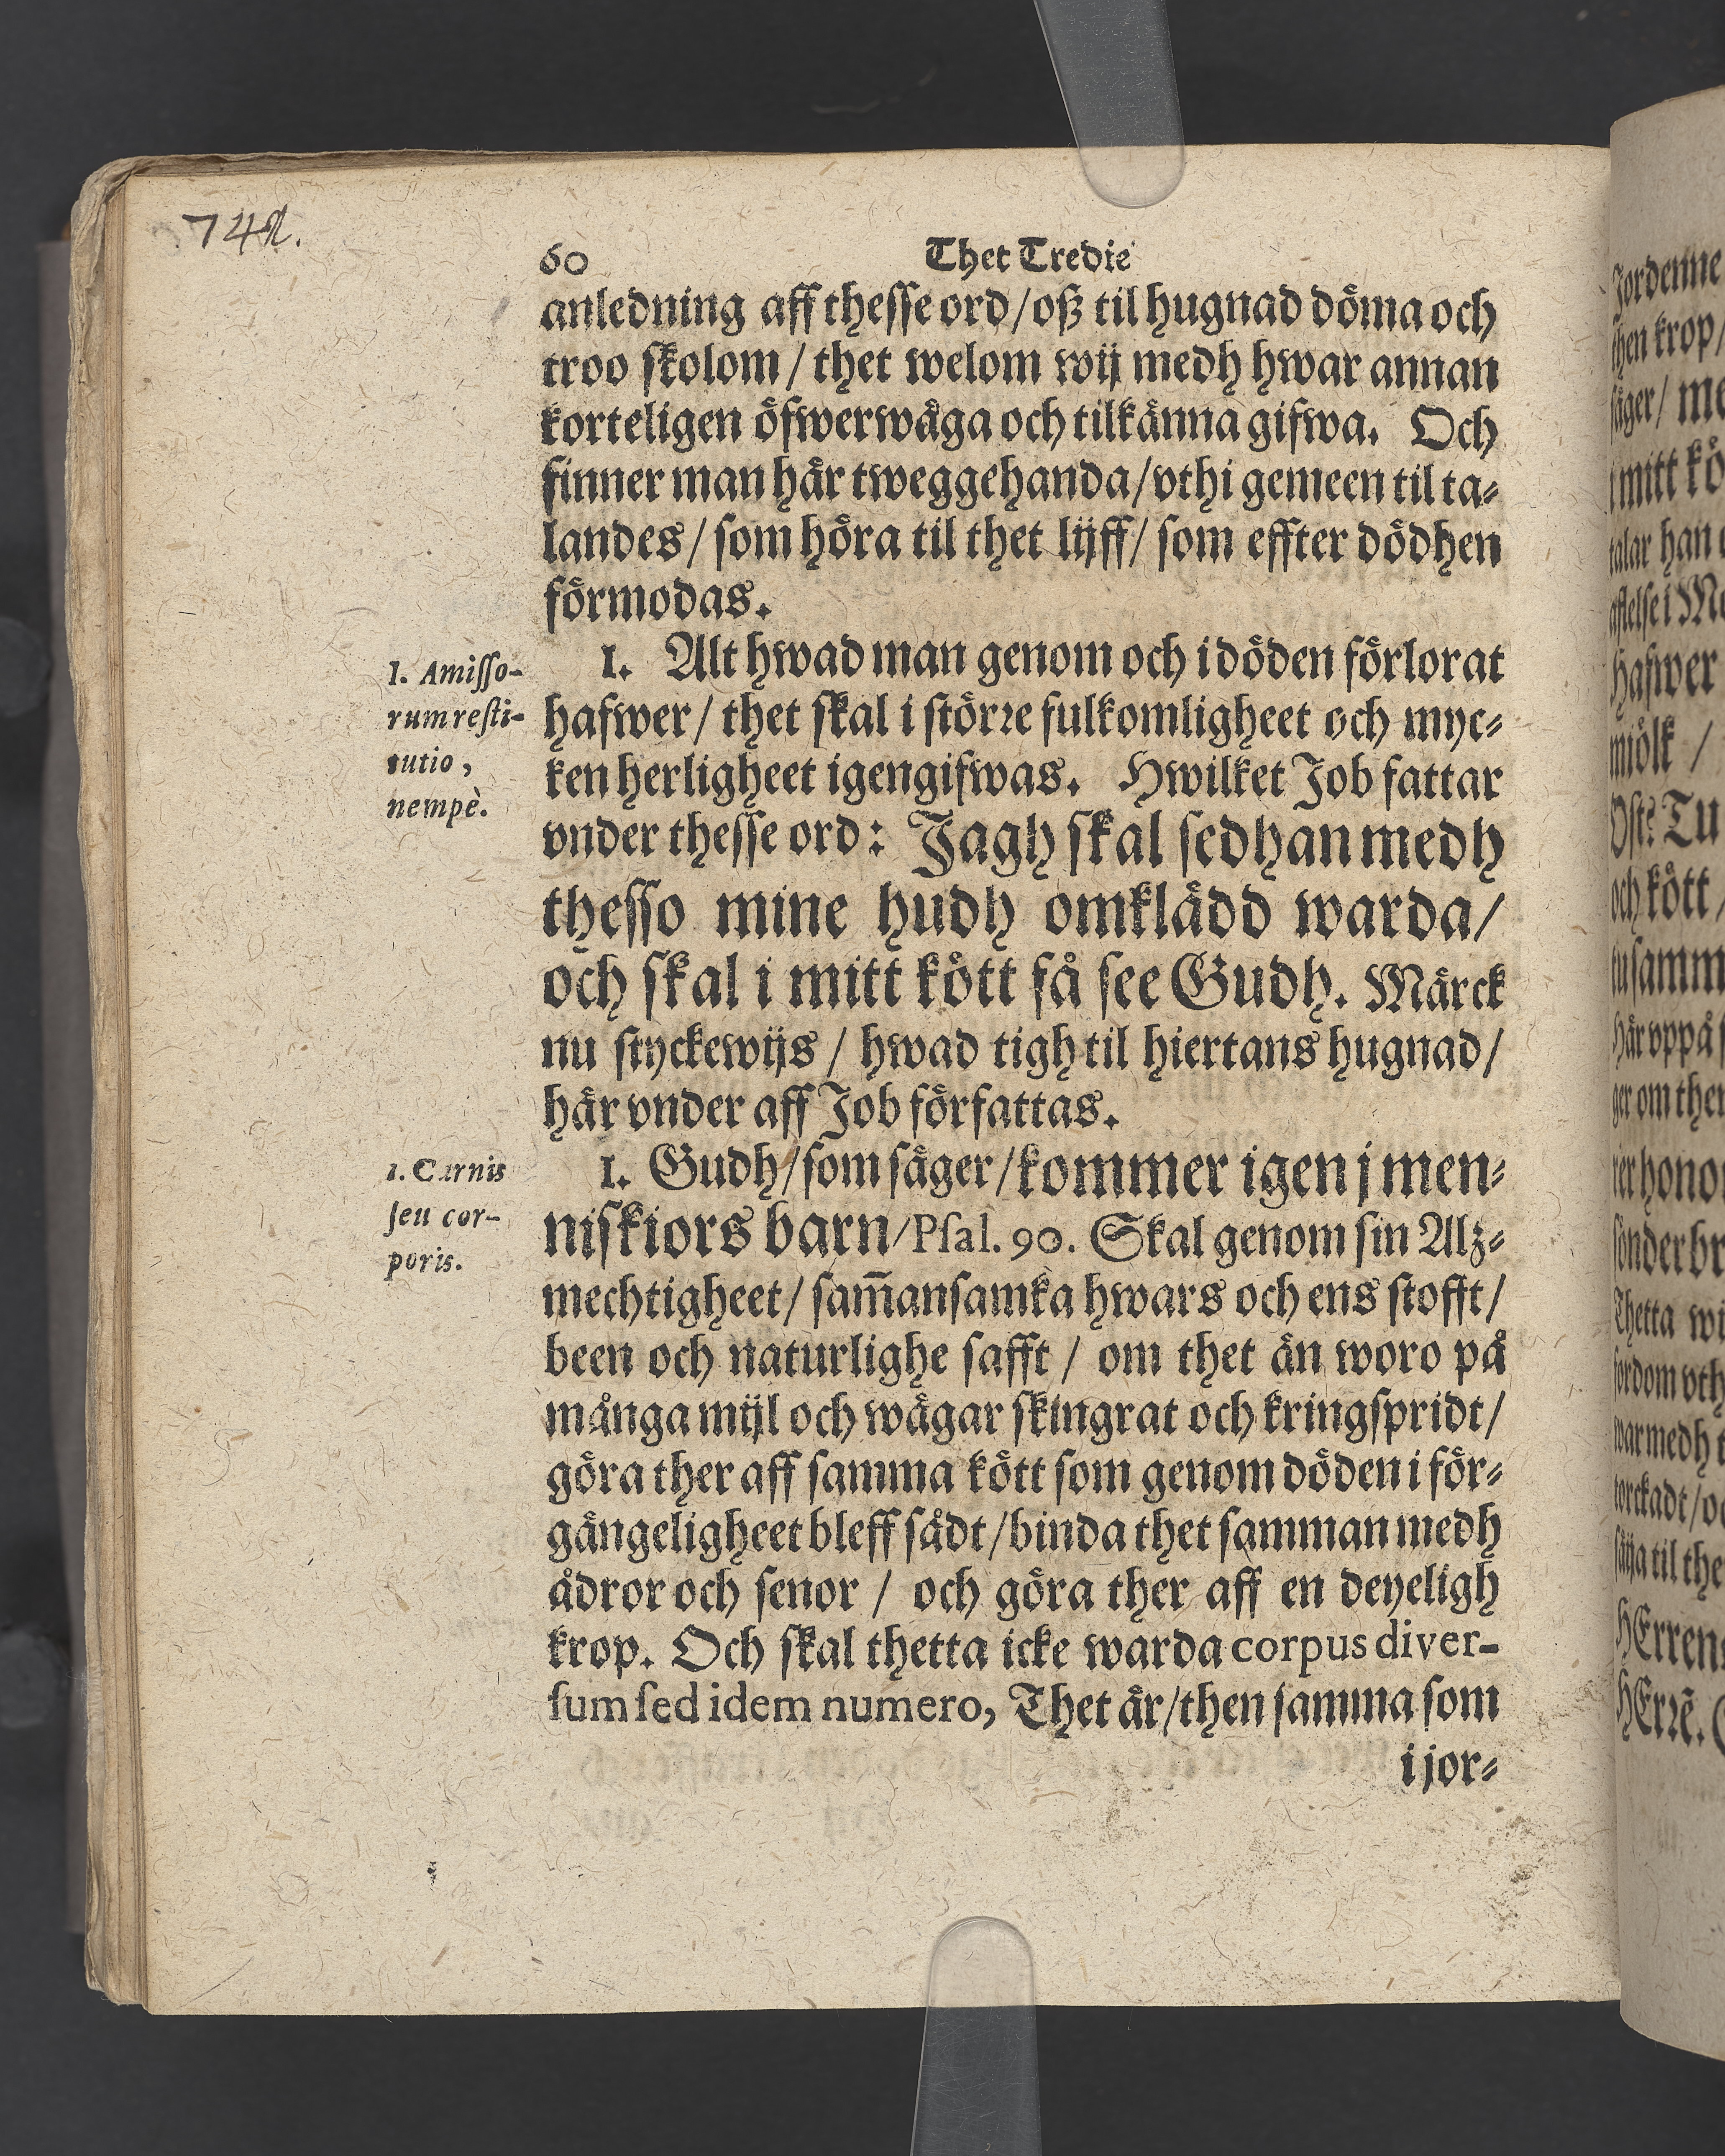 60 Thet Tredie
anledning aff thesse ord/oß til hugnad döma och
troo skolom / thet welom wij medh hwar annan
korteligen öfwerwäga och tilkänna gifwa. Och
finner man här tweggehanda/vthi gemeen til ta-
landes/ som höra til thet lijff/ som effter dödhen
förmodas.
1. Alt hwad man genom och i döden förlorat
hafwer/ thet skal i större fulkomligheet och myc-
ken herligheet igengifwas. Hwilket Job fattar
vnder thesse ord: Jagh skal sedhan medh
thesso mine hudh omklädd warda/
och skal i mitt kött få see Gudh. Märck
nu styckewijs / hwad tigh til hiertans hugnad/
här vnder aff Job författas.
1. Gudh/som säger/kommer igen j men-
niskiors barn/Psal. 90. Skal genom sin Alz-
mechtigheet/ sam̄ansamka hwars och ens stofft/
been och naturlighe safft / om thet än woro på
många mijl och wägar skingrat och kringspridt/
göra ther aff samma kött som genom döden i för-
gängeligheet bleff sådt/binda thet samman medh
ådror och senor / och göra ther aff en deyeligh
krop. Och skal thetta icke warda corpus diver-
sum sed idem numero, Thet är/then samma som
i jor-
1. Amisso-
rum resti-
tutio,
nempè.
1. Carnis
seu cor-
poris.